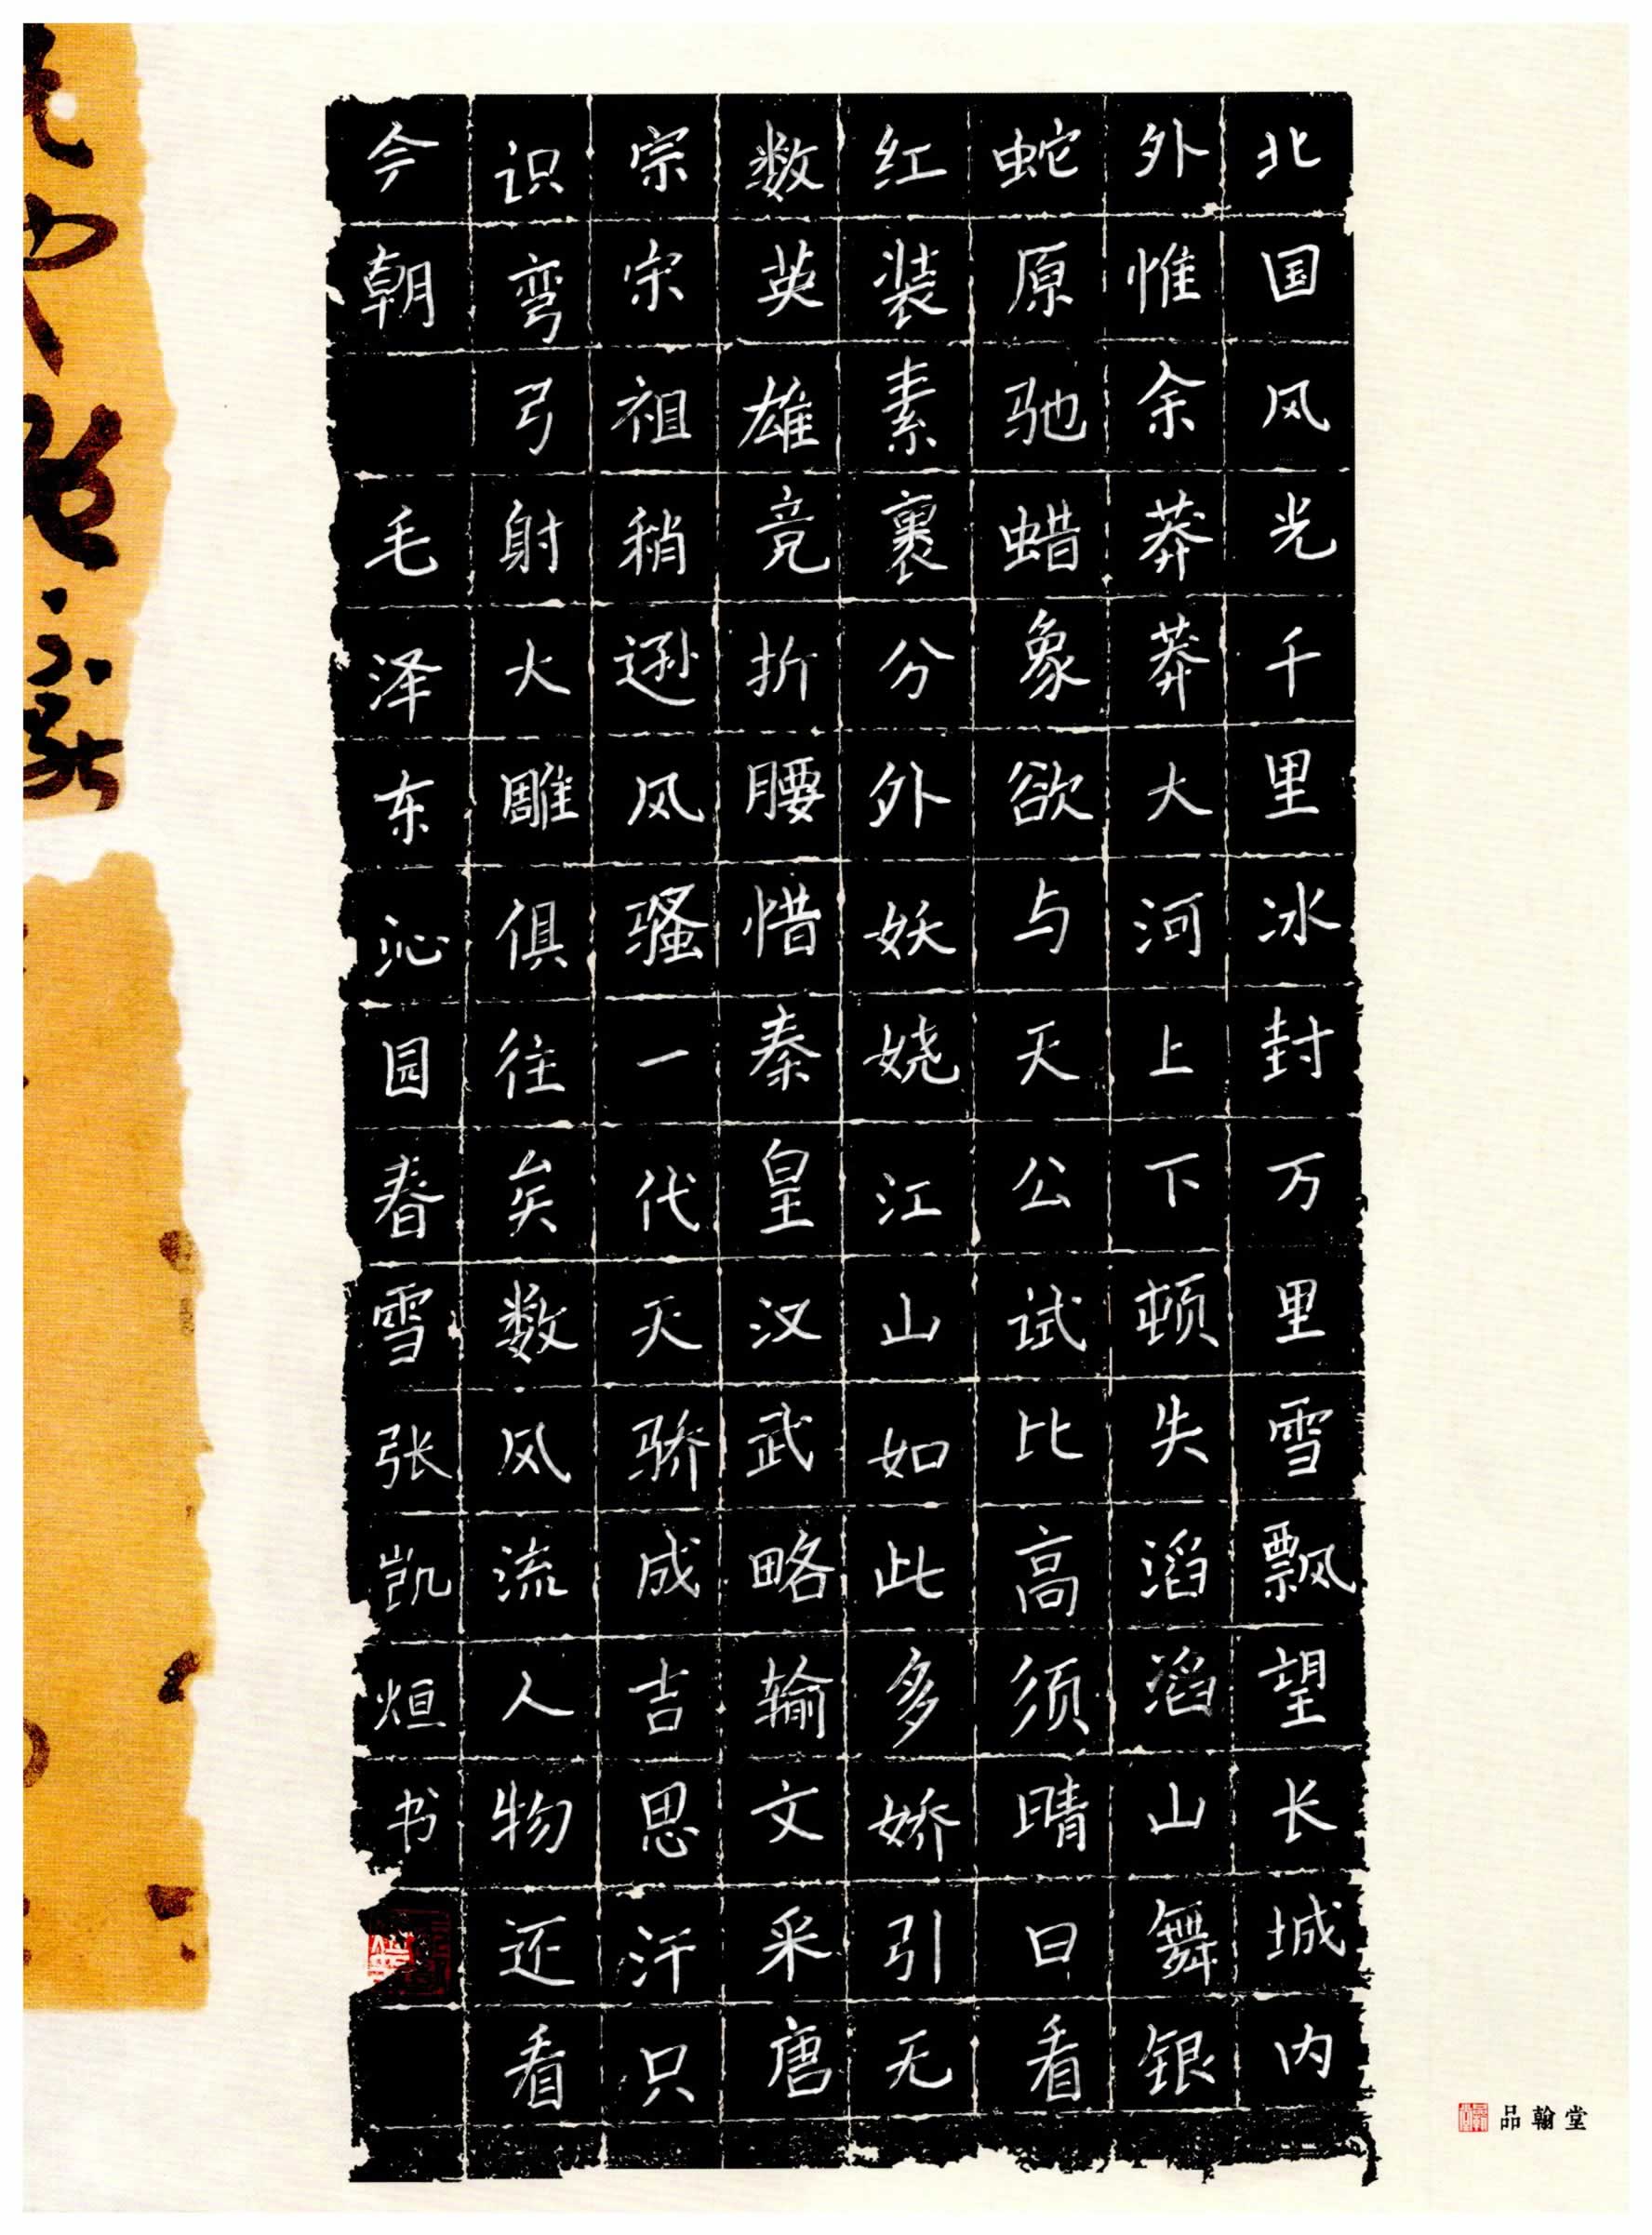 北国风光千里冰封万里雪飘望长城内
外惟余莽莽大河上下顿失滔滔山舞银
蛇原驰蜡象欲与天公试比高须晴日看
红装素裹分外妖娆江山如此多娇引无
数英雄竞折腰惜秦皇汉武略输文采唐
宗宋祖稍逊风骚一代天骄成吉思汗只
识弯弓射大雕俱往矣数风流人物还看
今朝 毛泽东沁园春雪张凯烜书
品翰堂